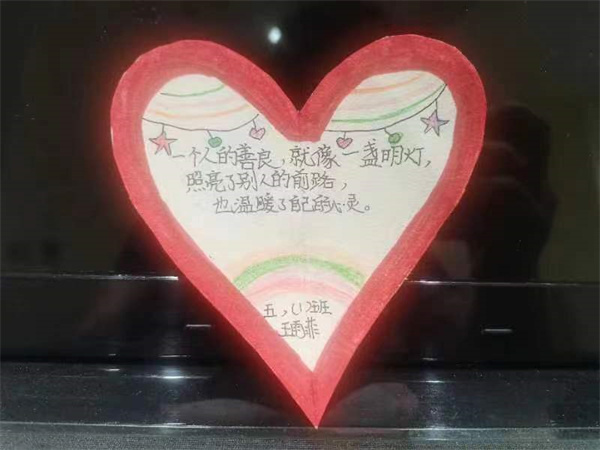 一个人的善良，就像一盏明灯，
照亮了别人的前路，
也温暖了自己的心灵。
五，(1)班